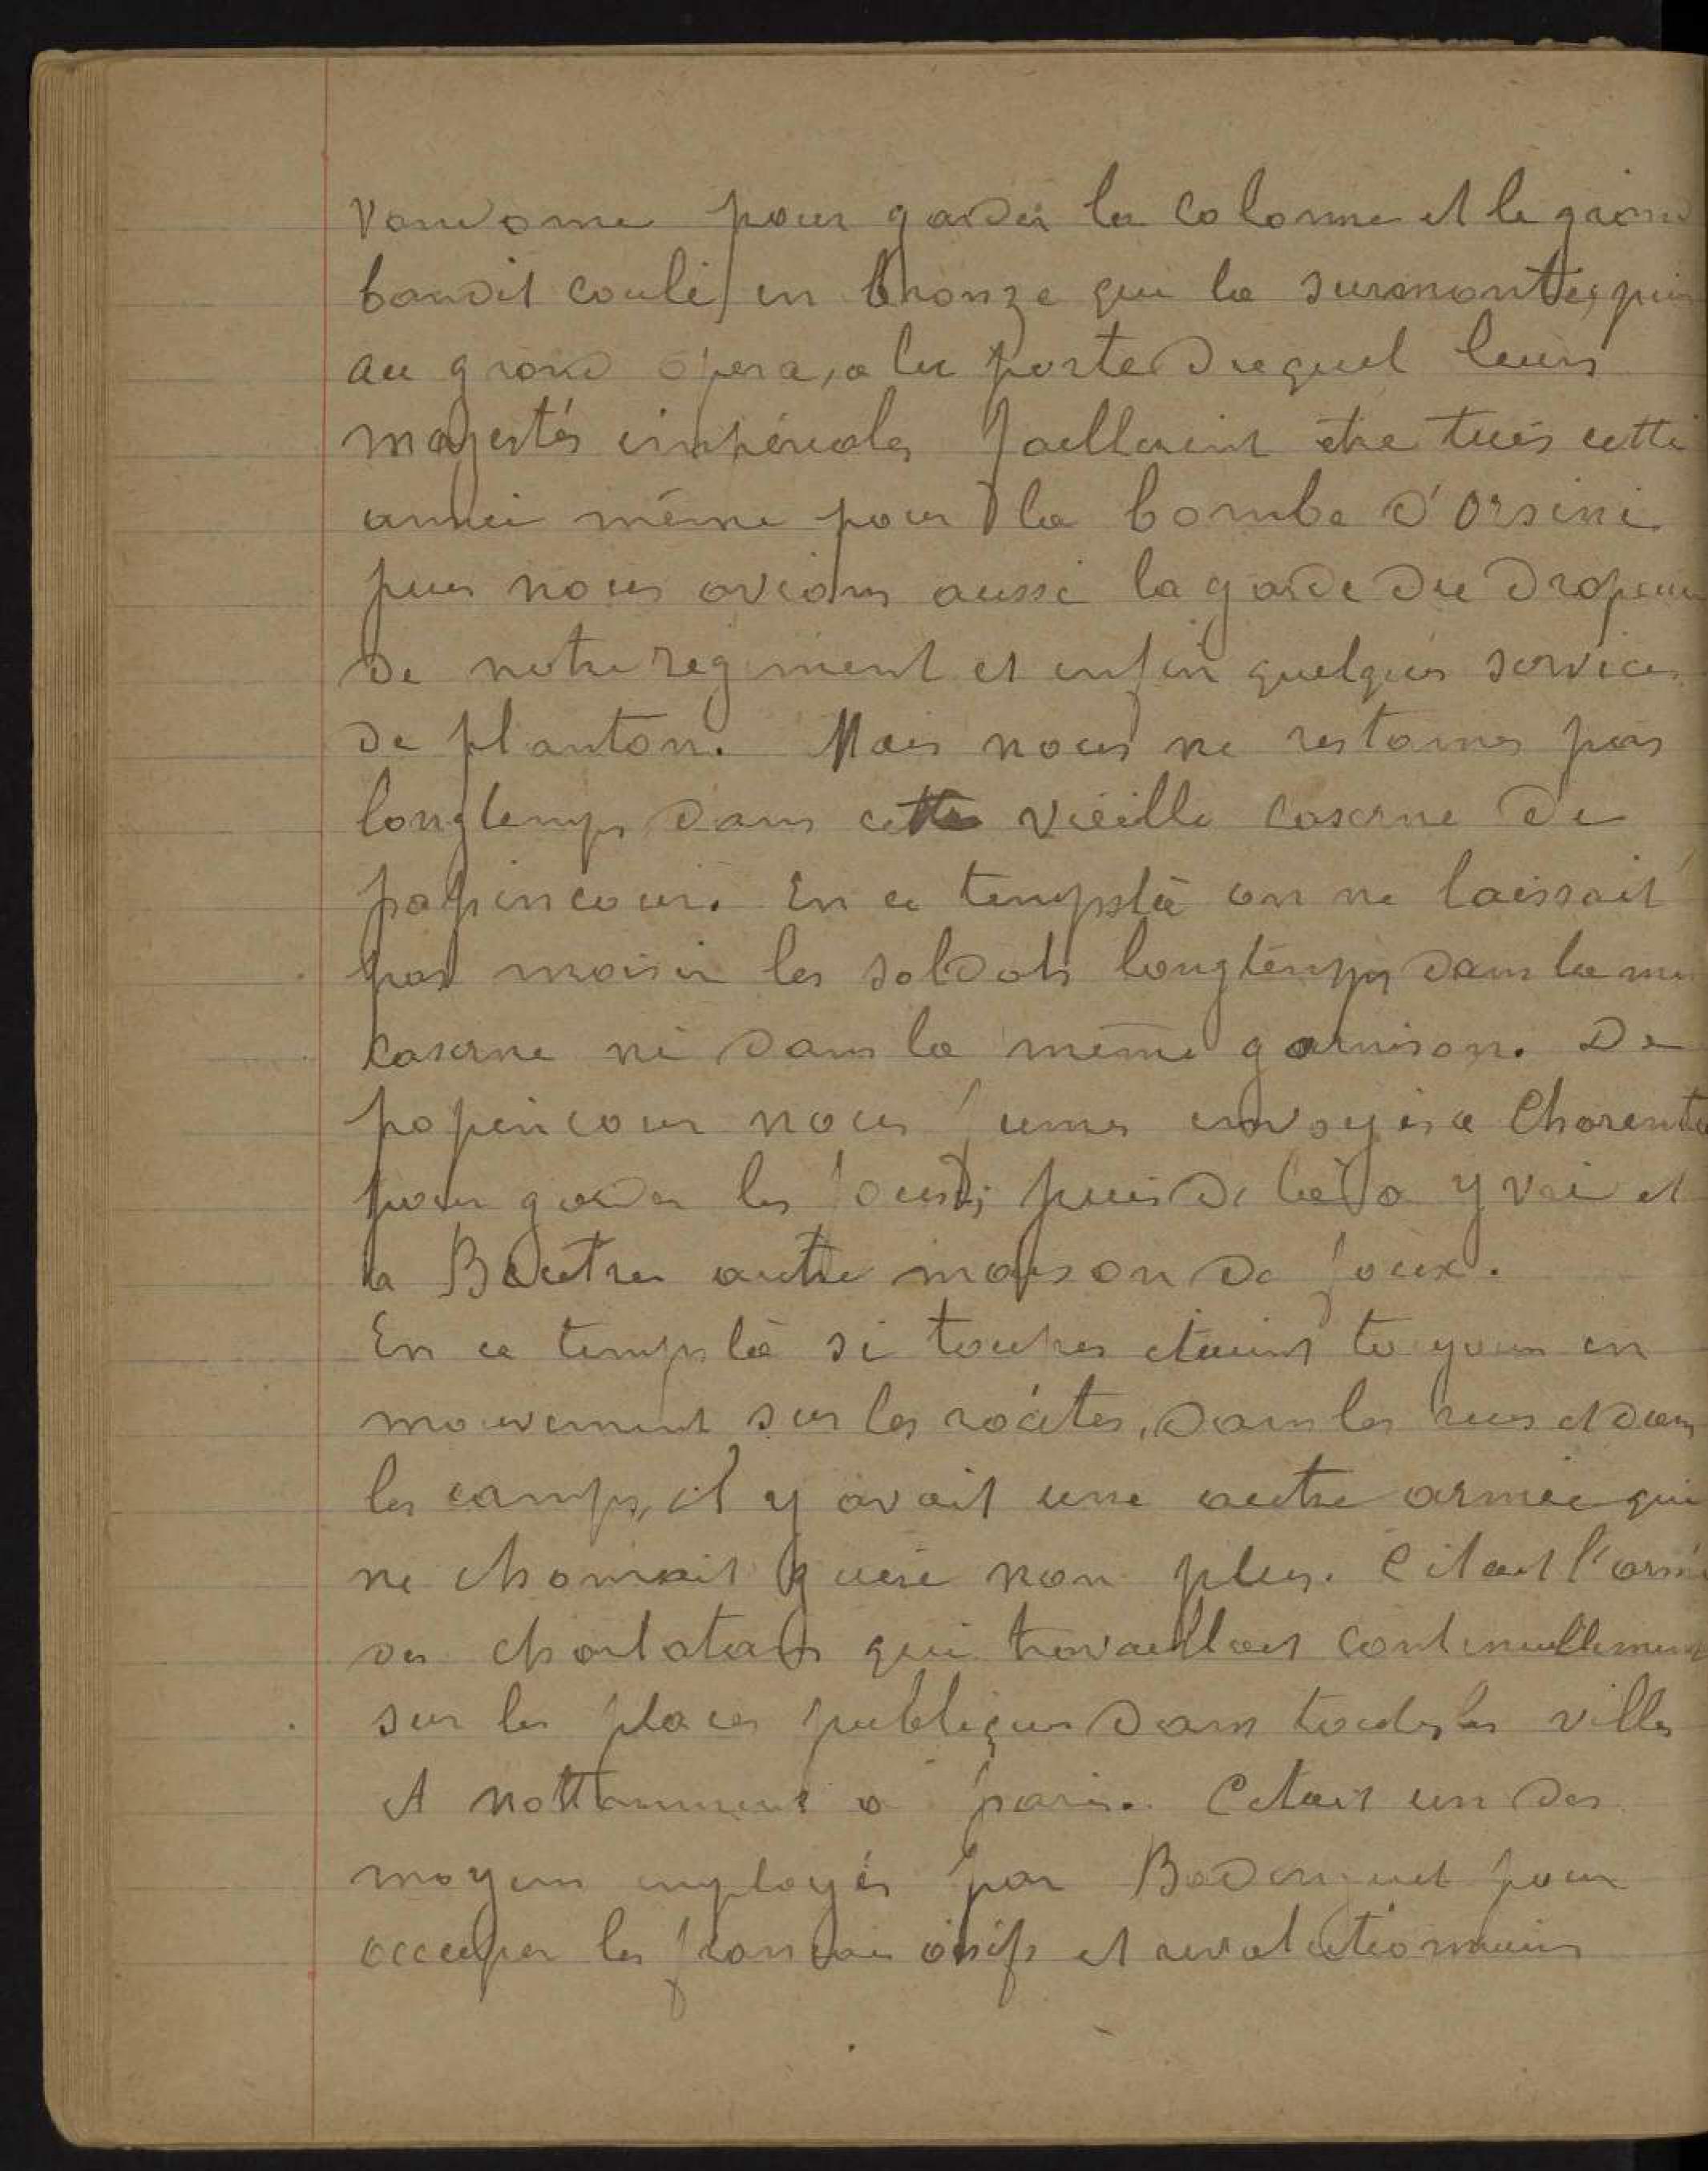 Vandome pour garder la colonne et le grand
bandit coulé en bronze qui la surmonte, puis
au grand opera, a la porte duquel leurs
majestés impériales faillirent être tués cette
année même pour la bombe d'Orsini
puis nous avions aussi la garde du drapeau
de notre regiment et enfin quelques services
de planton. Mais nous ne restames pas
longtemps dans cette vieille caserne de
popincour. En ce tempslà on ne laissait
pas moisir les soldats longtemps dans la me
caserne ni dans la même garnison. De
popincour nous fumes envoyés a Charento
pour garder les fous; puis de là a yvri et
a Bicetre autre maison de foux.
En ce temps là si toupes etaient toujours en
mouvement sur les routes, dans les rues et dans
les camps, il y avait une autre armée qui
ne chomait guere non plus. C'etait l'armé
des charlatans qui travaillait continuellement
sur les places publiques dans toutes les villes
et nottamment a paris. C'etait un des
moyens employés par Badinguet pour
occuper les francais oisifs et revolutionnaires